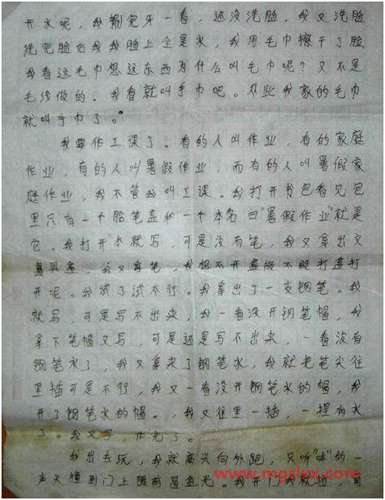 开水呢，我刷完牙一看，还没洗脸，我又洗脸
洗完脸后我我脸上全是水，我用毛巾擦干了脸
我看这毛巾想这东西为什么叫毛巾呢？又不是
毛线做的。我看就叫手巾吧。从此我家的毛巾
就叫手巾了。
我要作工课了。有的人叫作业，有的家庭
作业，有的人叫暑假作业，而有的人叫暑假家
庭作业，我不管我叫工课。我打开书包看见包
里只有一个铅笔盒和一个本名曰"暑假作业"就是
它。我打开本就写，可是没有笔，我又拿出文
具盒，我又拿笔，我想不开盒做不能打盒打
开呢。我试了试不行。我拿出了一支钢笔。我
就写，可是写不出来，我一看没开钢笔帽，我
拿下笔帽又写，可是还是写不出来，一看没有
钢笔水了，我又拿来了钢笔水，我就把笔尖往
里插可是不行，我又一看没开钢笔水的帽，我
开了钢笔水的帽。，我又往里一插，一捏有水
了。我又写，作完了。
我出去玩，我就高兴向外跑，只听"咚"的一
声火撞到门上
www.mgzhx.com